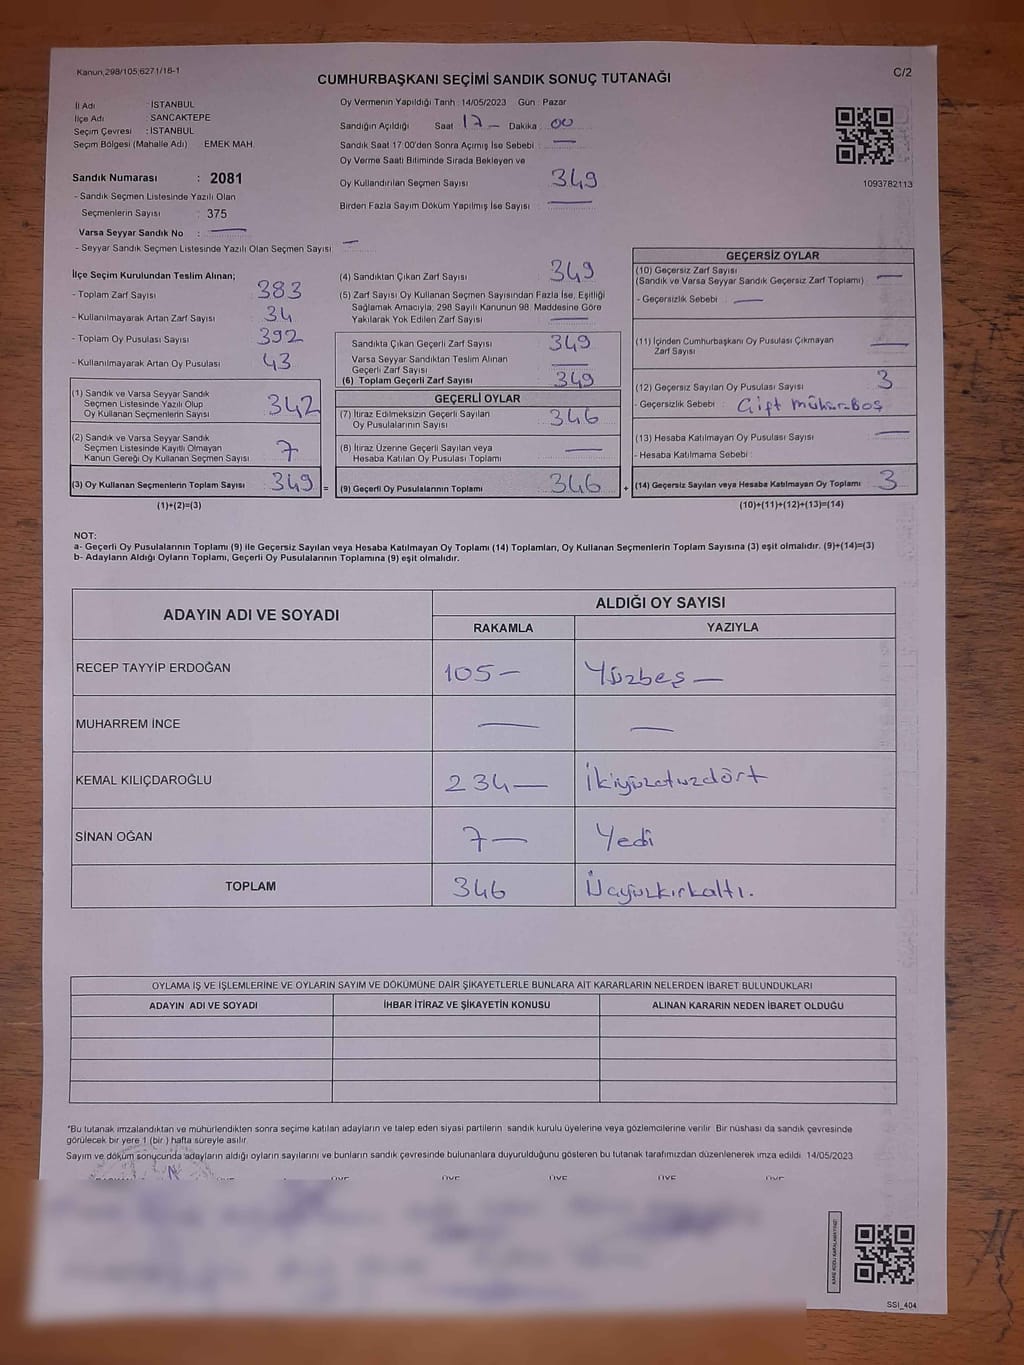 Kanun,298/105;6271/16-1
CUMHURBAŞKANI SEÇİMİ SANDIK SONUÇ TUTANAĞI
C/2
İl Adı : İSTANBUL
İlçe Adı : SANCAKTEPE
Seçim Çevresi : İSTANBUL
Seçim Bölgesi (Mahalle Adı) EMEK MAH.
Sandık Numarası : 2081
- Sandık Seçmen Listesinde Yazılı Olan
Seçmenlerin Sayısı : 375
Varsa Seyyar Sandık No : —
- Seyyar Sandık Seçmen Listesinde Yazılı Olan Seçmen Sayısı: —
Oy Vermenin Yapıldığı Tarih : 14/05/2023 Gün : Pazar
Sandığın Açıldığı Saat 17 — Dakika : 00
Sandık Saat 17:00'den Sonra Açımış İse Sebebi : —
Oy Verme Saati Bitiminde Sırada Bekleyen ve
Oy Kullandırılan Seçmen Sayısı 349
Birden Fazla Sayım Döküm Yapılmış İse Sayısı : —
1093782113
İlçe Seçim Kurulundan Teslim Alınan;
- Toplam Zarf Sayısı : 383
- Kullanılmayarak Artan Zarf Sayısı : 34
- Toplam Oy Pusulası Sayısı : 392
- Kullanılmayarak Artan Oy Pusulası : 43
(1) Sandık ve Varsa Seyyar Sandık
Seçmen Listesinde Yazılı Olup
Oy Kullanan Seçmenlerin Sayısı 342
(2) Sandık ve Varsa Seyyar Sandık
Seçmen Listesinde Kayıtlı Olmayan
Kanun Gereği Oy Kullanan Seçmen Sayısı 7
(3) Oy Kullanan Seçmenlerin Toplam Sayısı 349 =
(1)+(2)=(3)
(4) Sandıktan Çıkan Zarf Sayısı 349
(5) Zarf Sayısı Oy Kullanan Seçmen Sayısından Fazla İse, Eşitliği
Sağlamak Amacıyla; 298 Sayılı Kanunun 98. Maddesine Göre
Yakılarak Yok Edilen Zarf Sayısı —
Sandıkta Çıkan Geçerli Zarf Sayısı 349
Varsa Seyyar Sandıktan Teslim Alınan
Geçerli Zarf Sayısı —
(6) Toplam Geçerli Zarf Sayısı 349
GEÇERLİ OYLAR
(7) İtiraz Edilmeksizin Geçerli Sayılan
Oy Pusulalarının Sayısı 346
(8) İtiraz Üzerine Geçerli Sayılan veya
Hesaba Katılan Oy Pusulası Toplamı —
(9) Geçerli Oy Pusulalarının Toplamı 346 +
GEÇERSİZ OYLAR
(10) Geçersiz Zarf Sayısı
(Sandık ve Varsa Seyyar Sandık Geçersiz Zarf Toplamı) —
- Geçersizlik Sebebi : —
(11) İçinden Cumhurbaşkanı Oy Pusulası Çıkmayan
Zarf Sayısı —
(12) Geçersiz Sayılan Oy Pusulası Sayısı 3
- Geçersizlik Sebebi : Çift mühür.Boş
(13) Hesaba Katılmayan Oy Pusulası Sayısı —
- Hesaba Katılmama Sebebi :
(14) Geçersiz Sayılan veya Hesaba Katılmayan Oy Toplamı 3
(10)+(11)+(12)+(13)=(14)
NOT:
a- Geçerli Oy Pusulalarının Toplamı (9) ile Geçersiz Sayılan veya Hesaba Katılmayan Oy Toplamı (14) Toplamları, Oy Kullanan Seçmenlerin Toplam Sayısına (3) eşit olmalıdır. (9)+(14)=(3)
b- Adayların Aldığı Oyların Toplamı, Geçerli Oy Pusulalarının Toplamına (9) eşit olmalıdır.
ADAYIN ADI VE SOYADI
ALDIĞI OY SAYISI
RAKAMLA YAZIYLA
RECEP TAYYİP ERDOĞAN 105— Yüzbeş—
MUHARREM İNCE — —
KEMAL KILIÇDAROĞLU 234— İkiyüzotuzdört
SİNAN OĞAN 7— Yedi
TOPLAM 346 Üçyüzkırkaltı.
OYLAMA İŞ VE İŞLEMLERİNE VE OYLARIN SAYIM VE DÖKÜMÜNE DAİR ŞİKAYETLERLE BUNLARA AİT KARARLARIN NELERDEN İBARET BULUNDUKLARI
ADAYIN ADI VE SOYADI İHBAR İTİRAZ VE ŞİKAYETİN KONUSU ALINAN KARARIN NEDEN İBARET OLDUĞU
*Bu tutanak imzalandıktan ve mühürlendikten sonra seçime katılan adayların ve talep eden siyasi partilerin sandık kurulu üyelerine veya gözlemcilerine verilir. Bir nüshası da sandık çevresinde
görülecek bir yere 1 (bir ) hafta süreyle asılır.
Sayım ve döküm sonucunda adayların aldığı oyların sayılarını ve bunların sandık çevresinde bulunanlara duyurulduğunu gösteren bu tutanak tarafımızdan düzenlenerek imza edildi. 14/05/2023
ÜYE ÜYE ÜYE ÜYE ÜYE ÜYE
SSİ_404